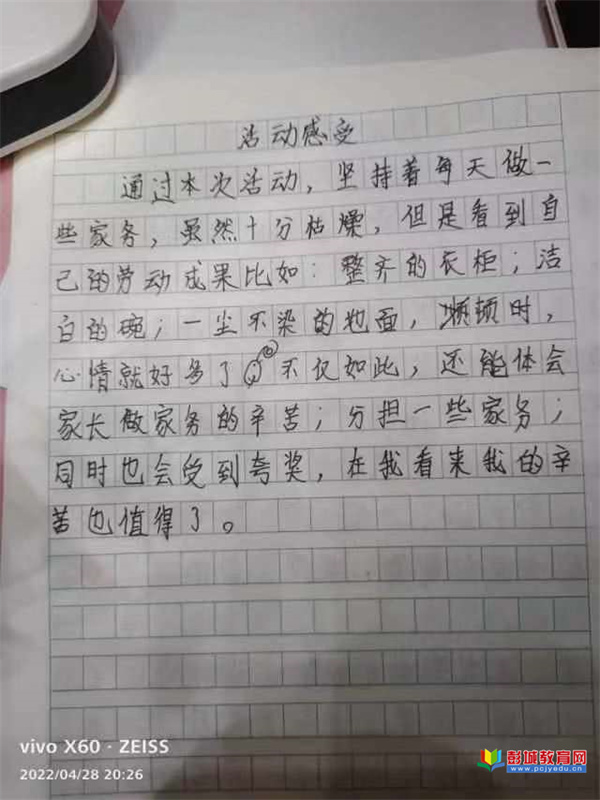 活动感受
通过本次活动，坚持着每天做一
些家务，虽然十分枯燥，但是看到自
己的劳动成果比如：整齐的衣柜；洁
白的碗；一尘不染的地面，顿时，
心情就好多了 不仅如此，还能体会
家长做家务的辛苦；分担一些家务；
同时也会受到夸奖，在我看来我的辛
苦也值得了。
vivo X60 · ZEISS
2022/04/28 20:26
彭城教育网
www.pcjyedu.cn